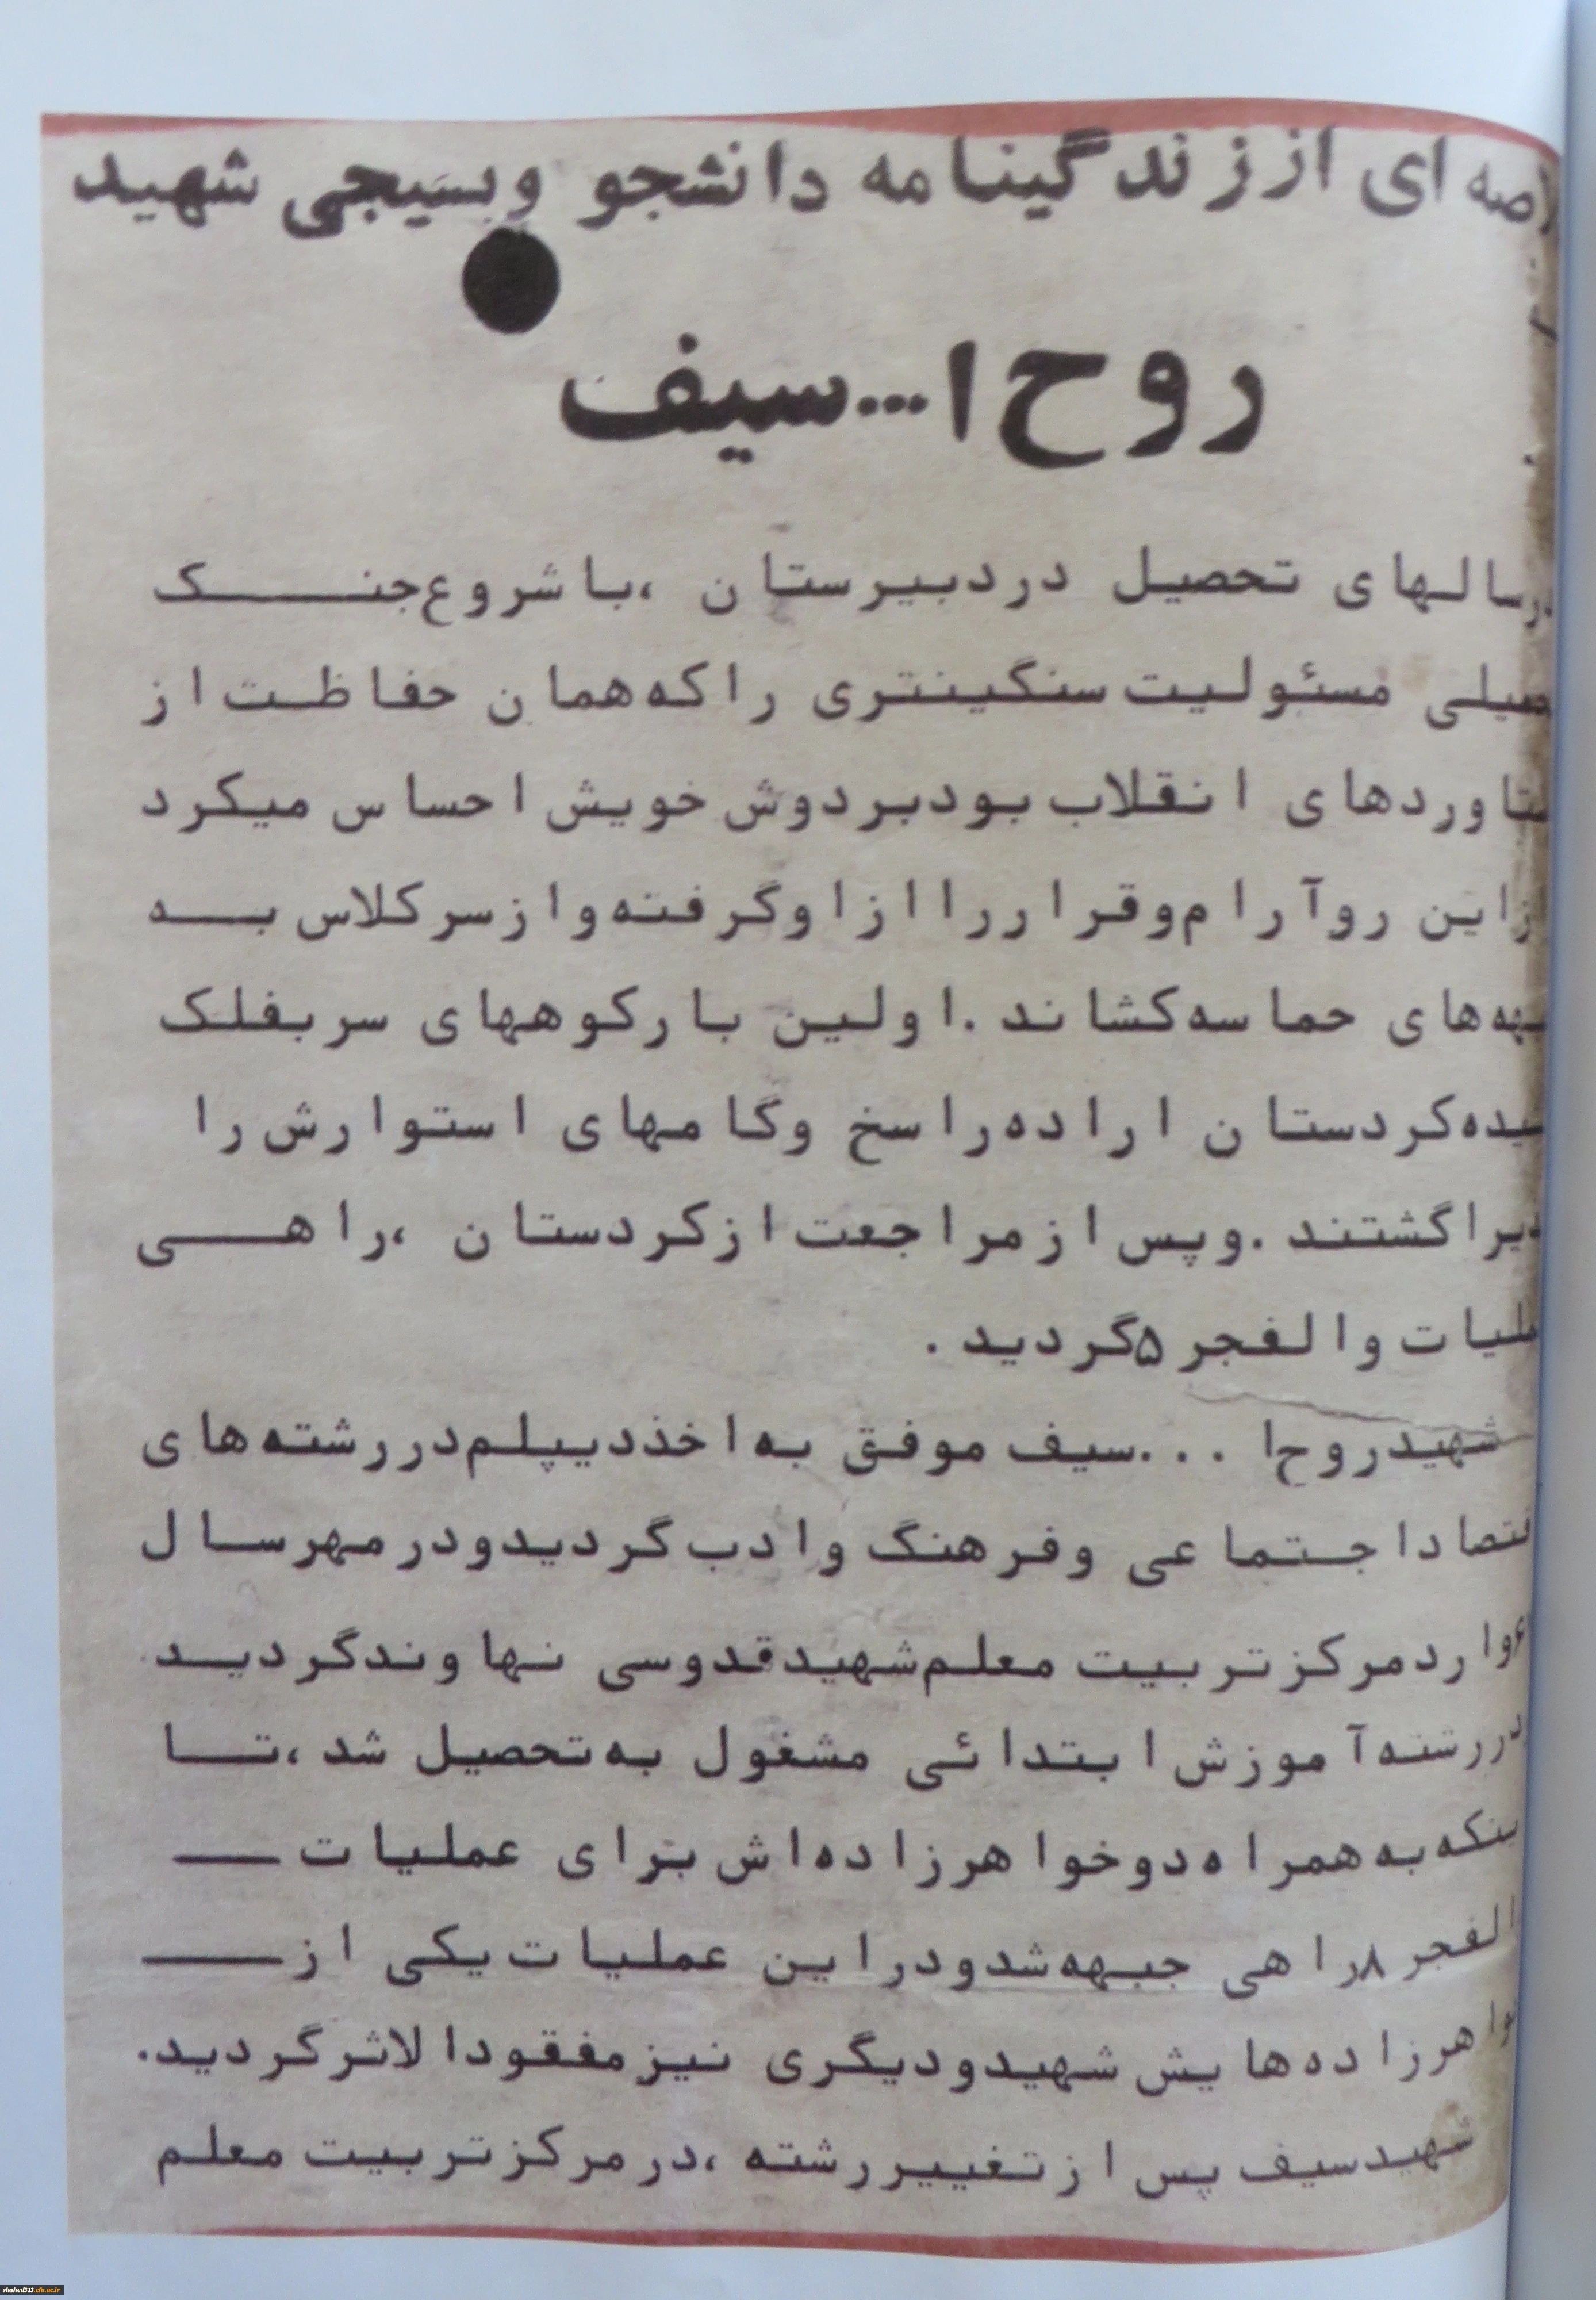 ای از زندگینامه دانشجو وبسیجی شهید
روح ا...سیف
سالهای تحصیل دردبیرستان ،باشروع جنـــک
مسئولیت سنگینتری راکه همان حفاظت از
انقلاب بودبردوش خویش احساس میکرد
این روآرام وقراررا ازاوگرفته وازسرکلاس بـــه
های حماسه کشاند .اولین بارکوههای سربفلک
کردستان اراده راسخ وگامهای استوارش را
گشتند .وپس ازمراجعت ازکردستان ،راهـــی
والفجر ۵گردید .
شهیدروح ا ...سیف موفق به اخذدیپلم دررشته های
اجتماعی وفرهنگ وادب گردیدودرمهرسـال
واردمرکزتربیت معلم شهیدقدوسی نهاوندگردیـد
دررشته آموزش ابتدائی مشغول به تحصیل شد ،تـــا
به همراه دوخواهرزاده اش برای عملیات ـــ
الفجر ۸راهی جبهه شدودراین عملیات یکی از ـــ
هرزاده هایش شهیدودیگری نیزمفقودالاثرگردید.
شهیدسیف پس ازتغییررشته ،درمرکزتربیت معلم
shahed313.cfu.ac.ir